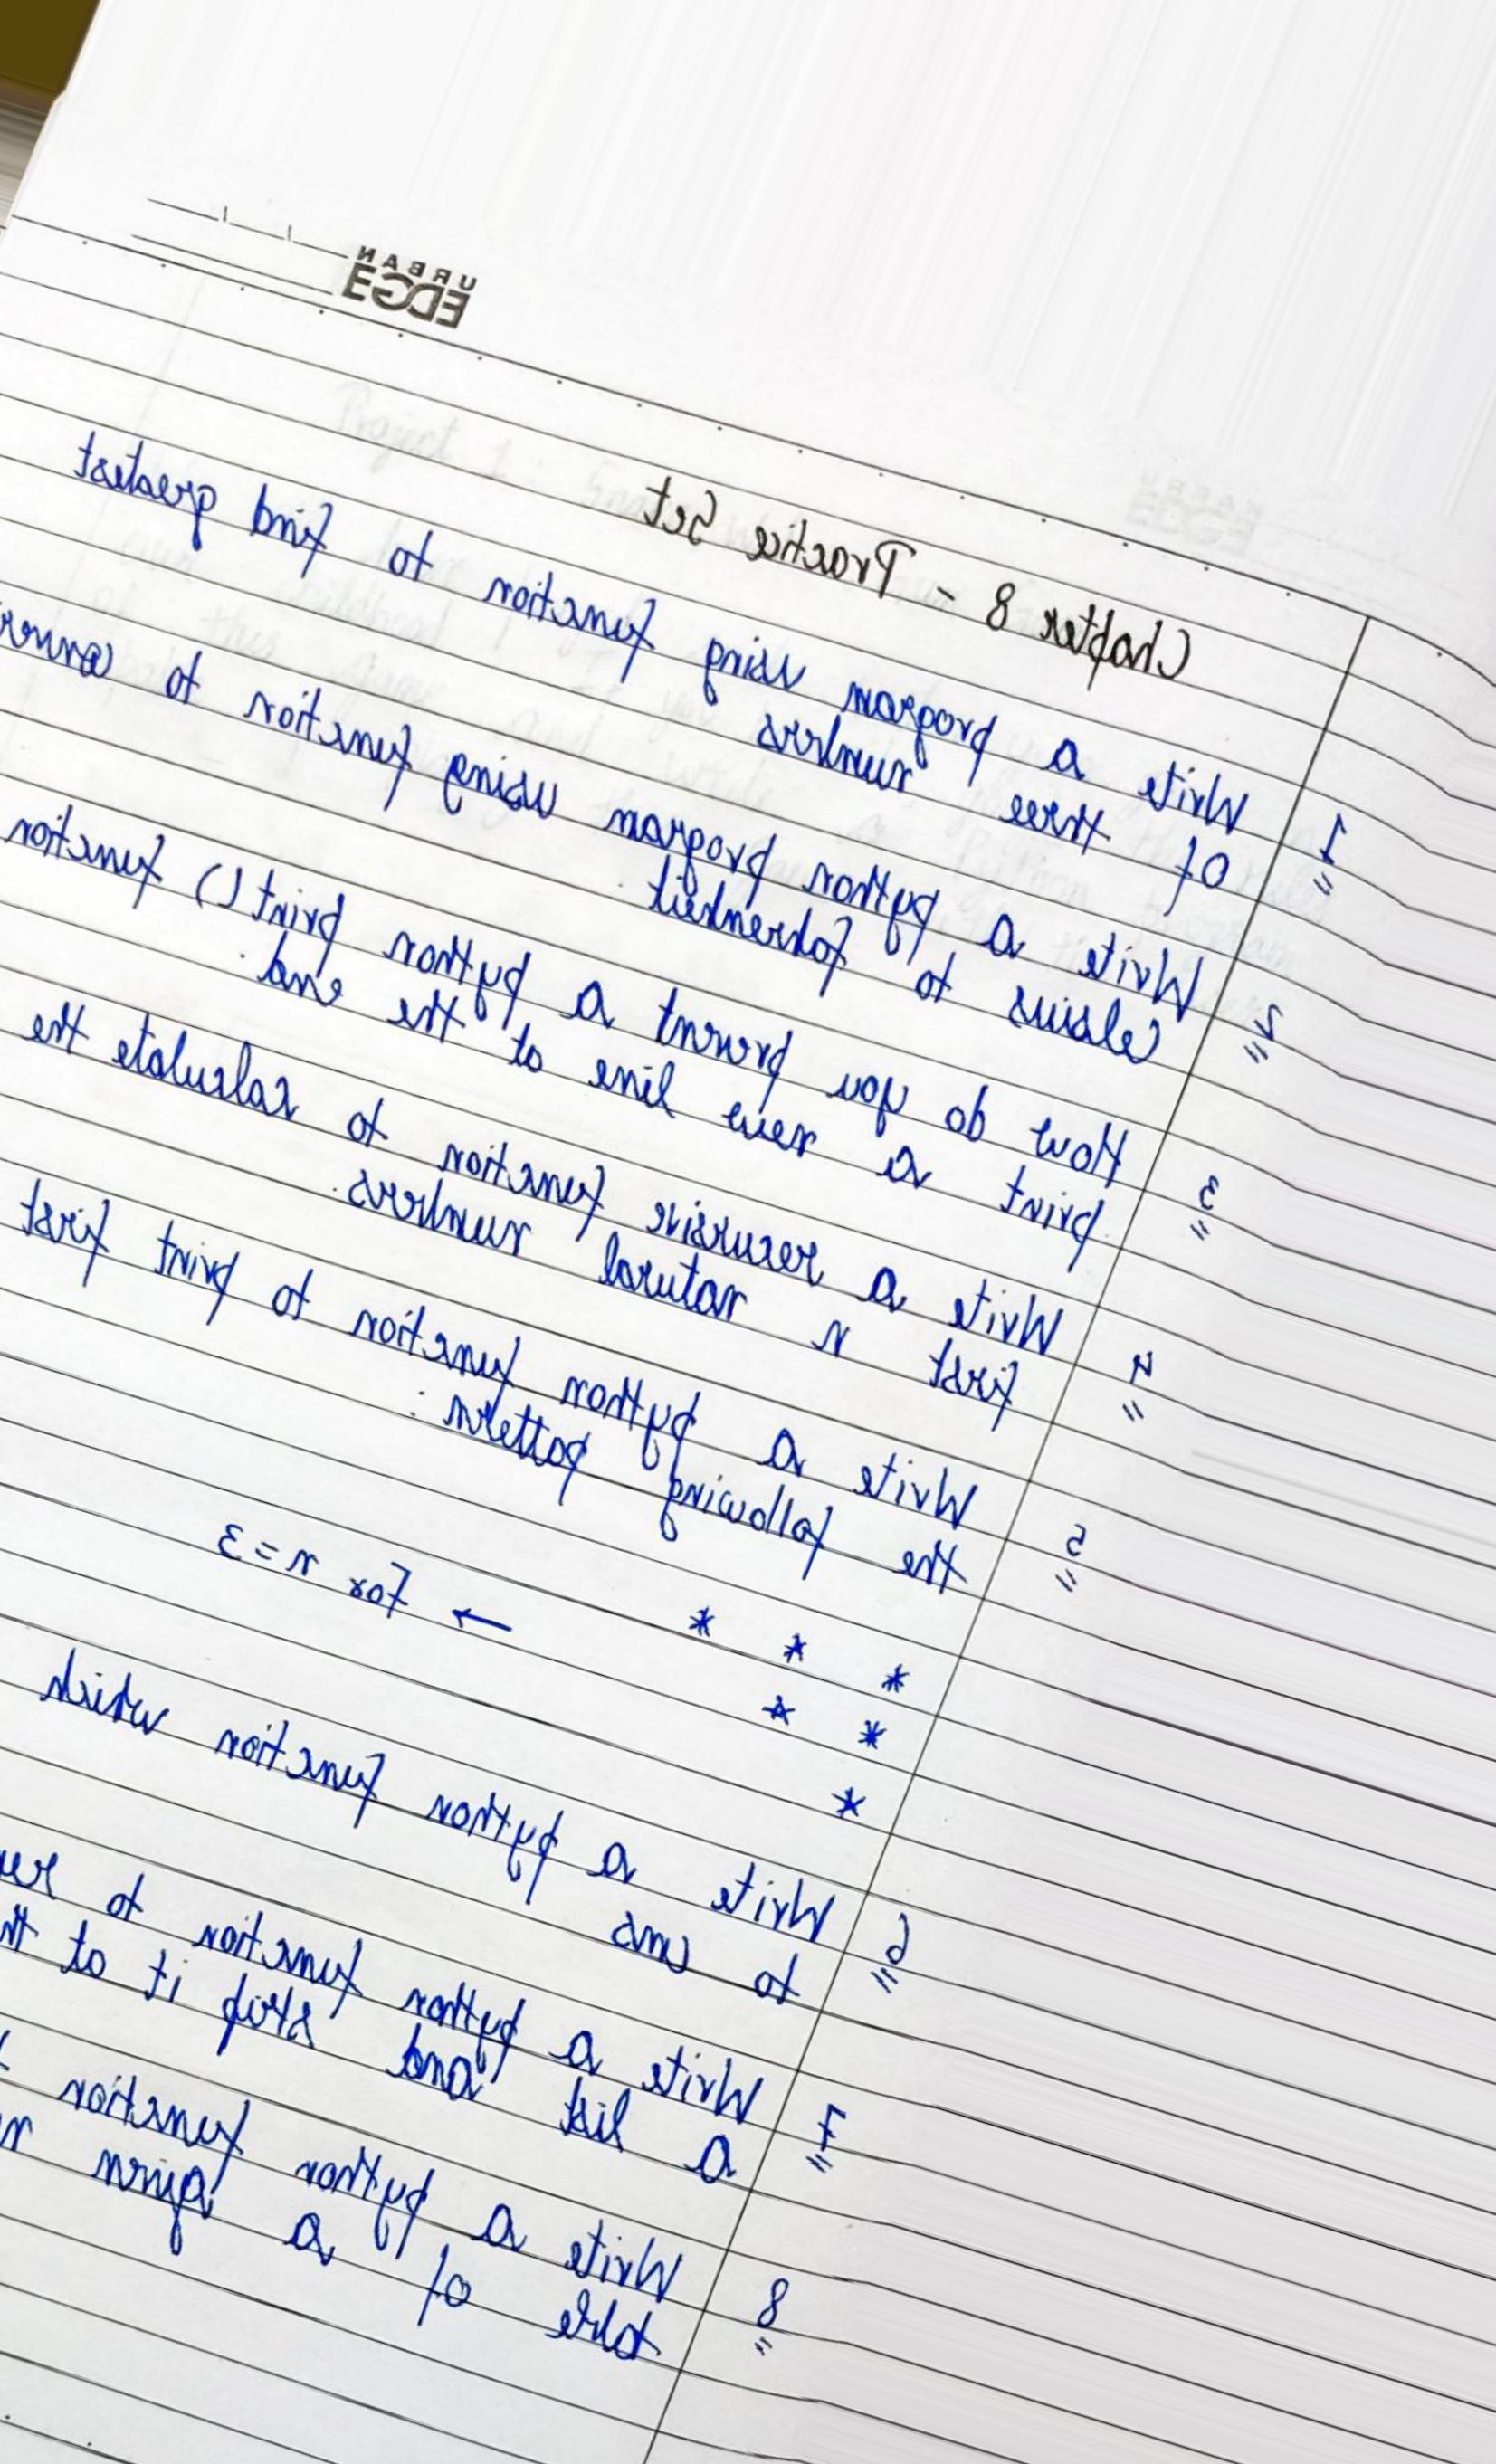 URBAN
EDGE
Chapter 8 - Practice Set
1 Write a program using function to find greatest
of three numbers
2 Write a python program using function to
Celsius to fahrenheit
3 How do you prevent a python print() function
print a new line at the end.
4 Write a recursive function to calculate the
first n natural numbers.
5 Write a python function to print first
the following pattern:
* * *
* * ← For n=3
*
6 Write a python function which
to cms
7 Write a python function to
a list and strip it at
8 Write a python function
table of a given